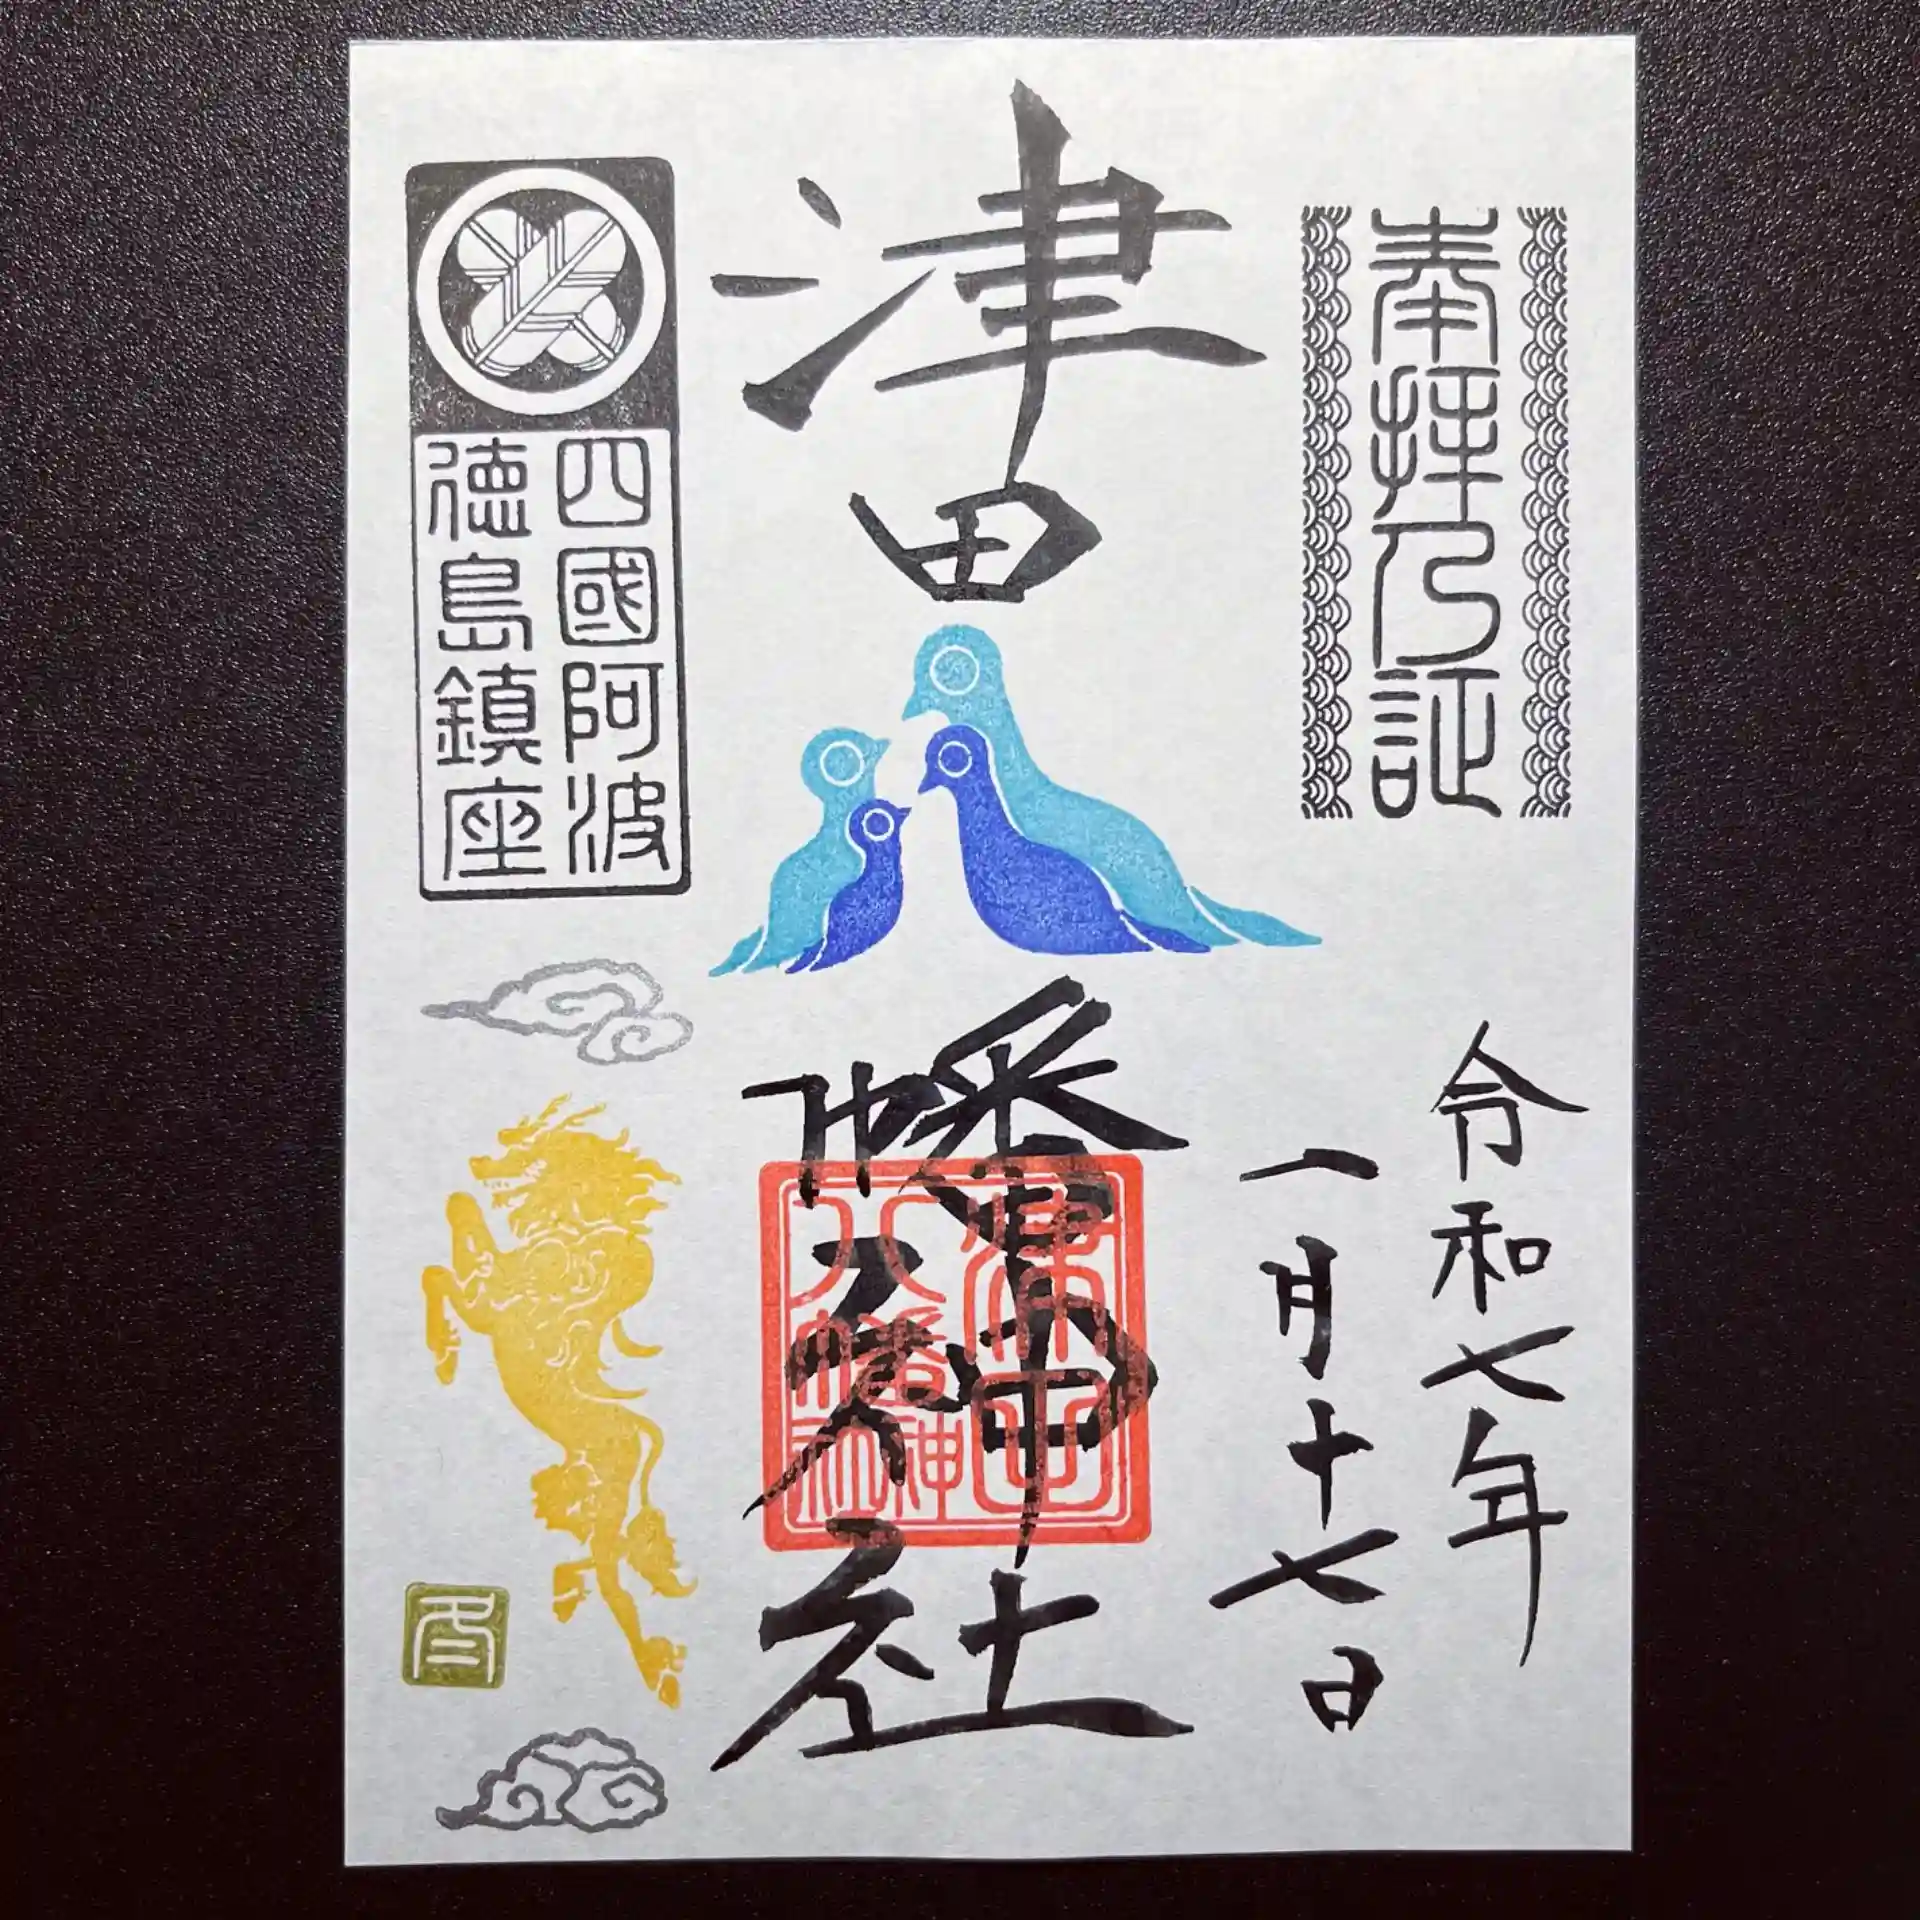 奉拝之証
令和七年
一月十七日
津田
幡神社
津田
八幡
神社
四國阿波
徳島鎮座